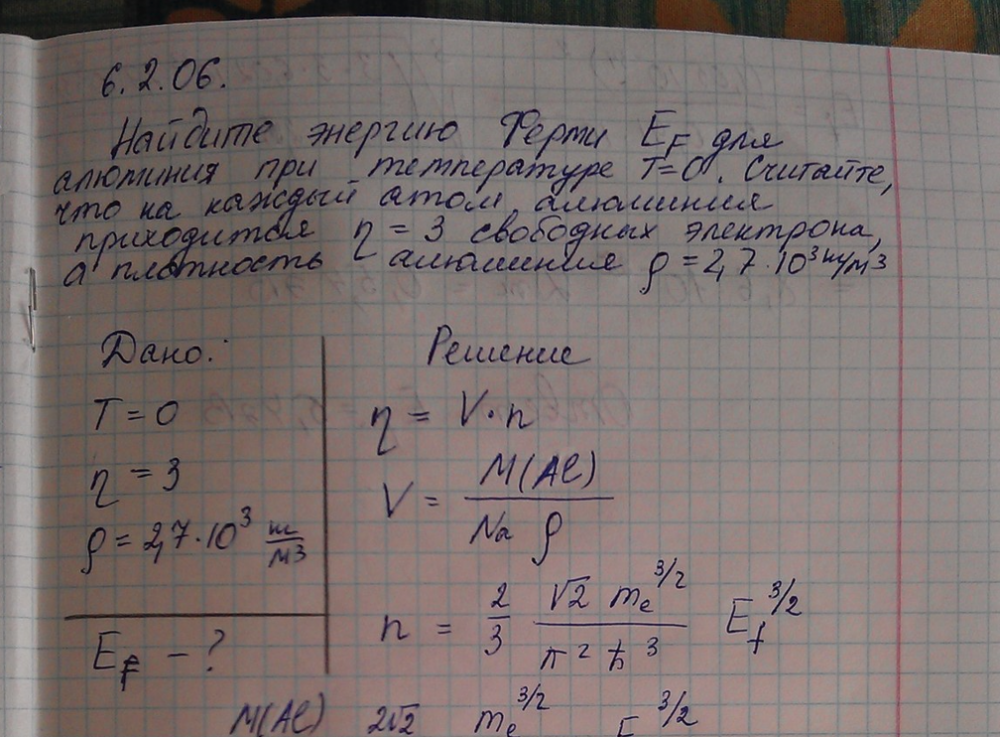 6.2.06.
Найдите энергию Ферми E_F для
алюминия при температуре T=0. Считайте,
что на каждый атом алюминия
приходится η = 3 свободных электрона,
а плотность алюминия ρ = 2,7·10³ кг/м³
Дано:
T = 0
η = 3
ρ = 2,7·10³ кг/м³
E_F – ?
Решение
η = V·n
V = M(Al) / (Na ρ)
n = 2/3 √2 m_e^3/2 / (π² ħ³) E_f^3/2
M(Al) 2√2 m_e^3/2 E^3/2